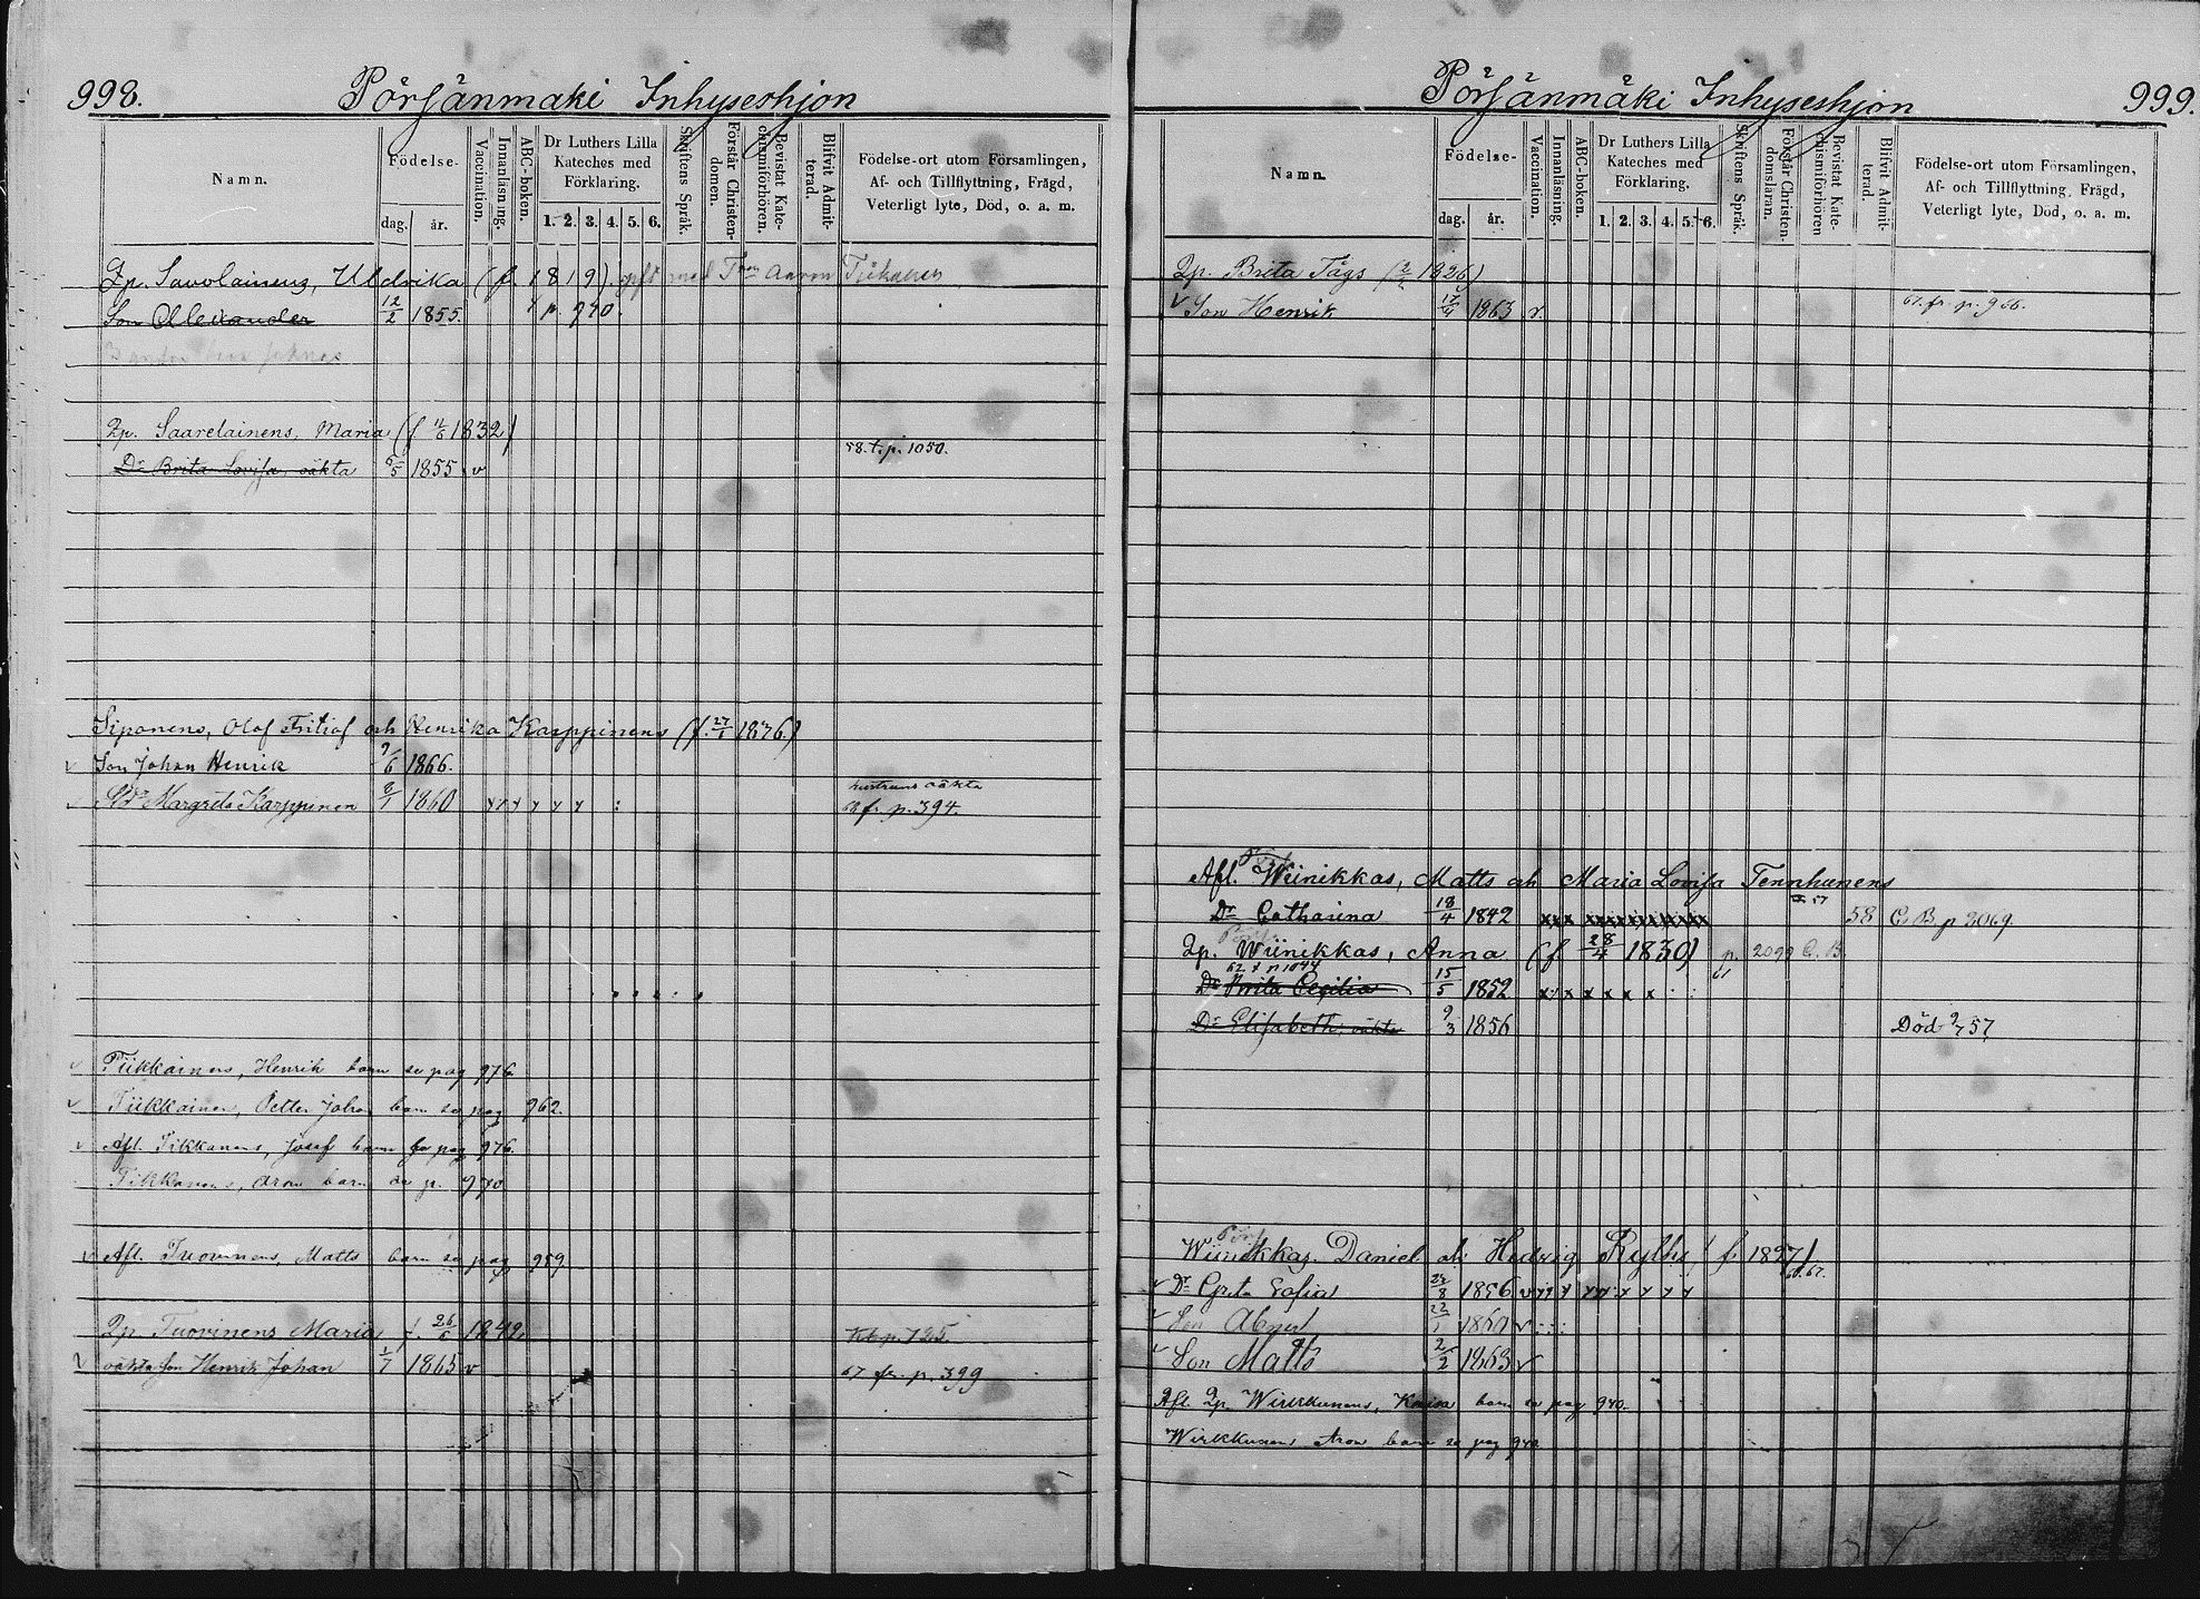 998.
Pörsänmäki Inhyseshjon
Namn.
Födelse-
dag.
år.
Vaccination.
Innanläsning.
ABC-boken.
Dr Luthers Lilla
Kateches med
Förklaring.
1. 2. 3. 4. 5. 6.
Skriftens Språk.
Förstår Christen-
domen.
Bevistat Kate-
chismiförhören.
Blifvit Admit-
terad.
Födelse-ort utom Församlingen,
Af- och Tillflyttning, Frägd,
Veterligt lyte, Död, o. a. m.
Qp. Savolainens, Uldrika (f. 1819) gift med Aaron Tiikanen
Son Allexander 12/2 1855. p. 970.
Qp. Saarelainens, Maria (f. 11/6 1832)
58. t. p. 1050.
Dr Brita Lovisa, oäkta 9/5 1855 v
Siponens, Olof Fritiof och Henrika Karppinens (f. 27/1 1876.)
Son Johan Henrik 9/6 1866.
hustruns oäkta
Margreta Karppinen 1860 fr. p. 394.
Tiikkainens, Henrik barn se pag 976
Tiikkainen, Petter Johan barn se pag 962.
Afl. Tikkanens, Josef barn se pag 976.
Tikkanens, Aron barn se p. 970
Afl. Tuovinens, Matts barn se pag 959
Qp. Tuovinens Maria f. 26/6 1842.
oäkta son Henrik Johan 1/7 1865 v 67 fr. p. 399
Pörsänmäki Inhyseshjon
999.
Namn.
Födelse-
dag.
år.
Vaccination.
Innanläsning.
ABC-boken.
Dr Luthers Lilla
Kateches med
Förklaring.
1. 2. 3. 4. 5. 6.
Skriftens Språk.
Förstår Christen-
domslaran.
Bevistat Kate-
chismiförhören
Blifvit Admit-
terad.
Födelse-ort utom Församlingen,
Af- och Tillflyttning, Frägd,
Veterligt lyte, Död, o. a. m.
Qp. Brita Tågs 1826)
v Son Henrik 17/4 1863 v. 67. fr. p. 966.
Afl. Wiinikkas, Matts och Maria Lovisa Tennhunens
Dr Catharina 18/4 1842 xxx 58 C B p 2069.
Qp. Wiinikkas, Anna (f. 28/4 1830) p. 2099 C. B.
62 t p 1044
Dr Brita Cecilia 15/5 1852 x x x x x x
Dr Elisabeth, oäkta 9/3 1856 Död 9/7 57
Wiinikkas, Daniel och Hedvig Rytky (f. 1827)
Dr Greta Sofia 1856
Son Abner 1860 v
Son Matts 2/2 1863 v
Afl. Qp. Wirkkunens, Kaisa barn se pag 940.
Wirkkunen Aron barn se pag 940